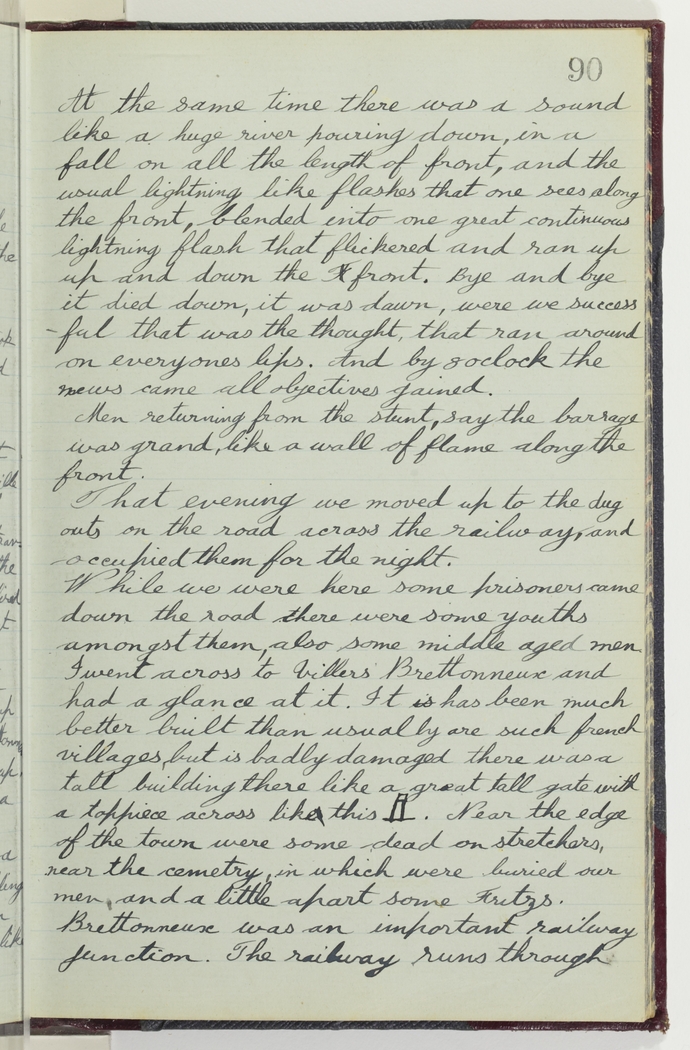 90
At the same time there was a sound
like a huge river pouring down, in a
fall on all the length of front, and the
usual lightning like flashes that one sees along
the front, blended into one great continuous
lightning flash that flickered and ran up
up and down the front. Bye and bye
it died down, it was dawn, were we success
-ful that was the thought, that ran around
on everyones lips. And by 8 oclock the
news came all objectives gained.
Men returning from the stunt, say the barrage
was grand, like a wall of flame along the
front.
That evening we moved up to the dug
outs on the road across the railway, and
occupied them for the night.
While we were here some prisoners came
down the road there were some youths
amongst them, also some middle aged men.
I went across to Villers Brettonneux and
had a glance at it. It is has been much
better built than usually are such french
villages, but is badly damaged there was a
tall building there like a great tall gate with
a toppiece across like this . Near the edge
of the town were some dead on stretchers,
near the cemetry, in which were buried our
men, and a little apart some Fritzs.
Brettonneux was an important railway
junction. The railway runs through